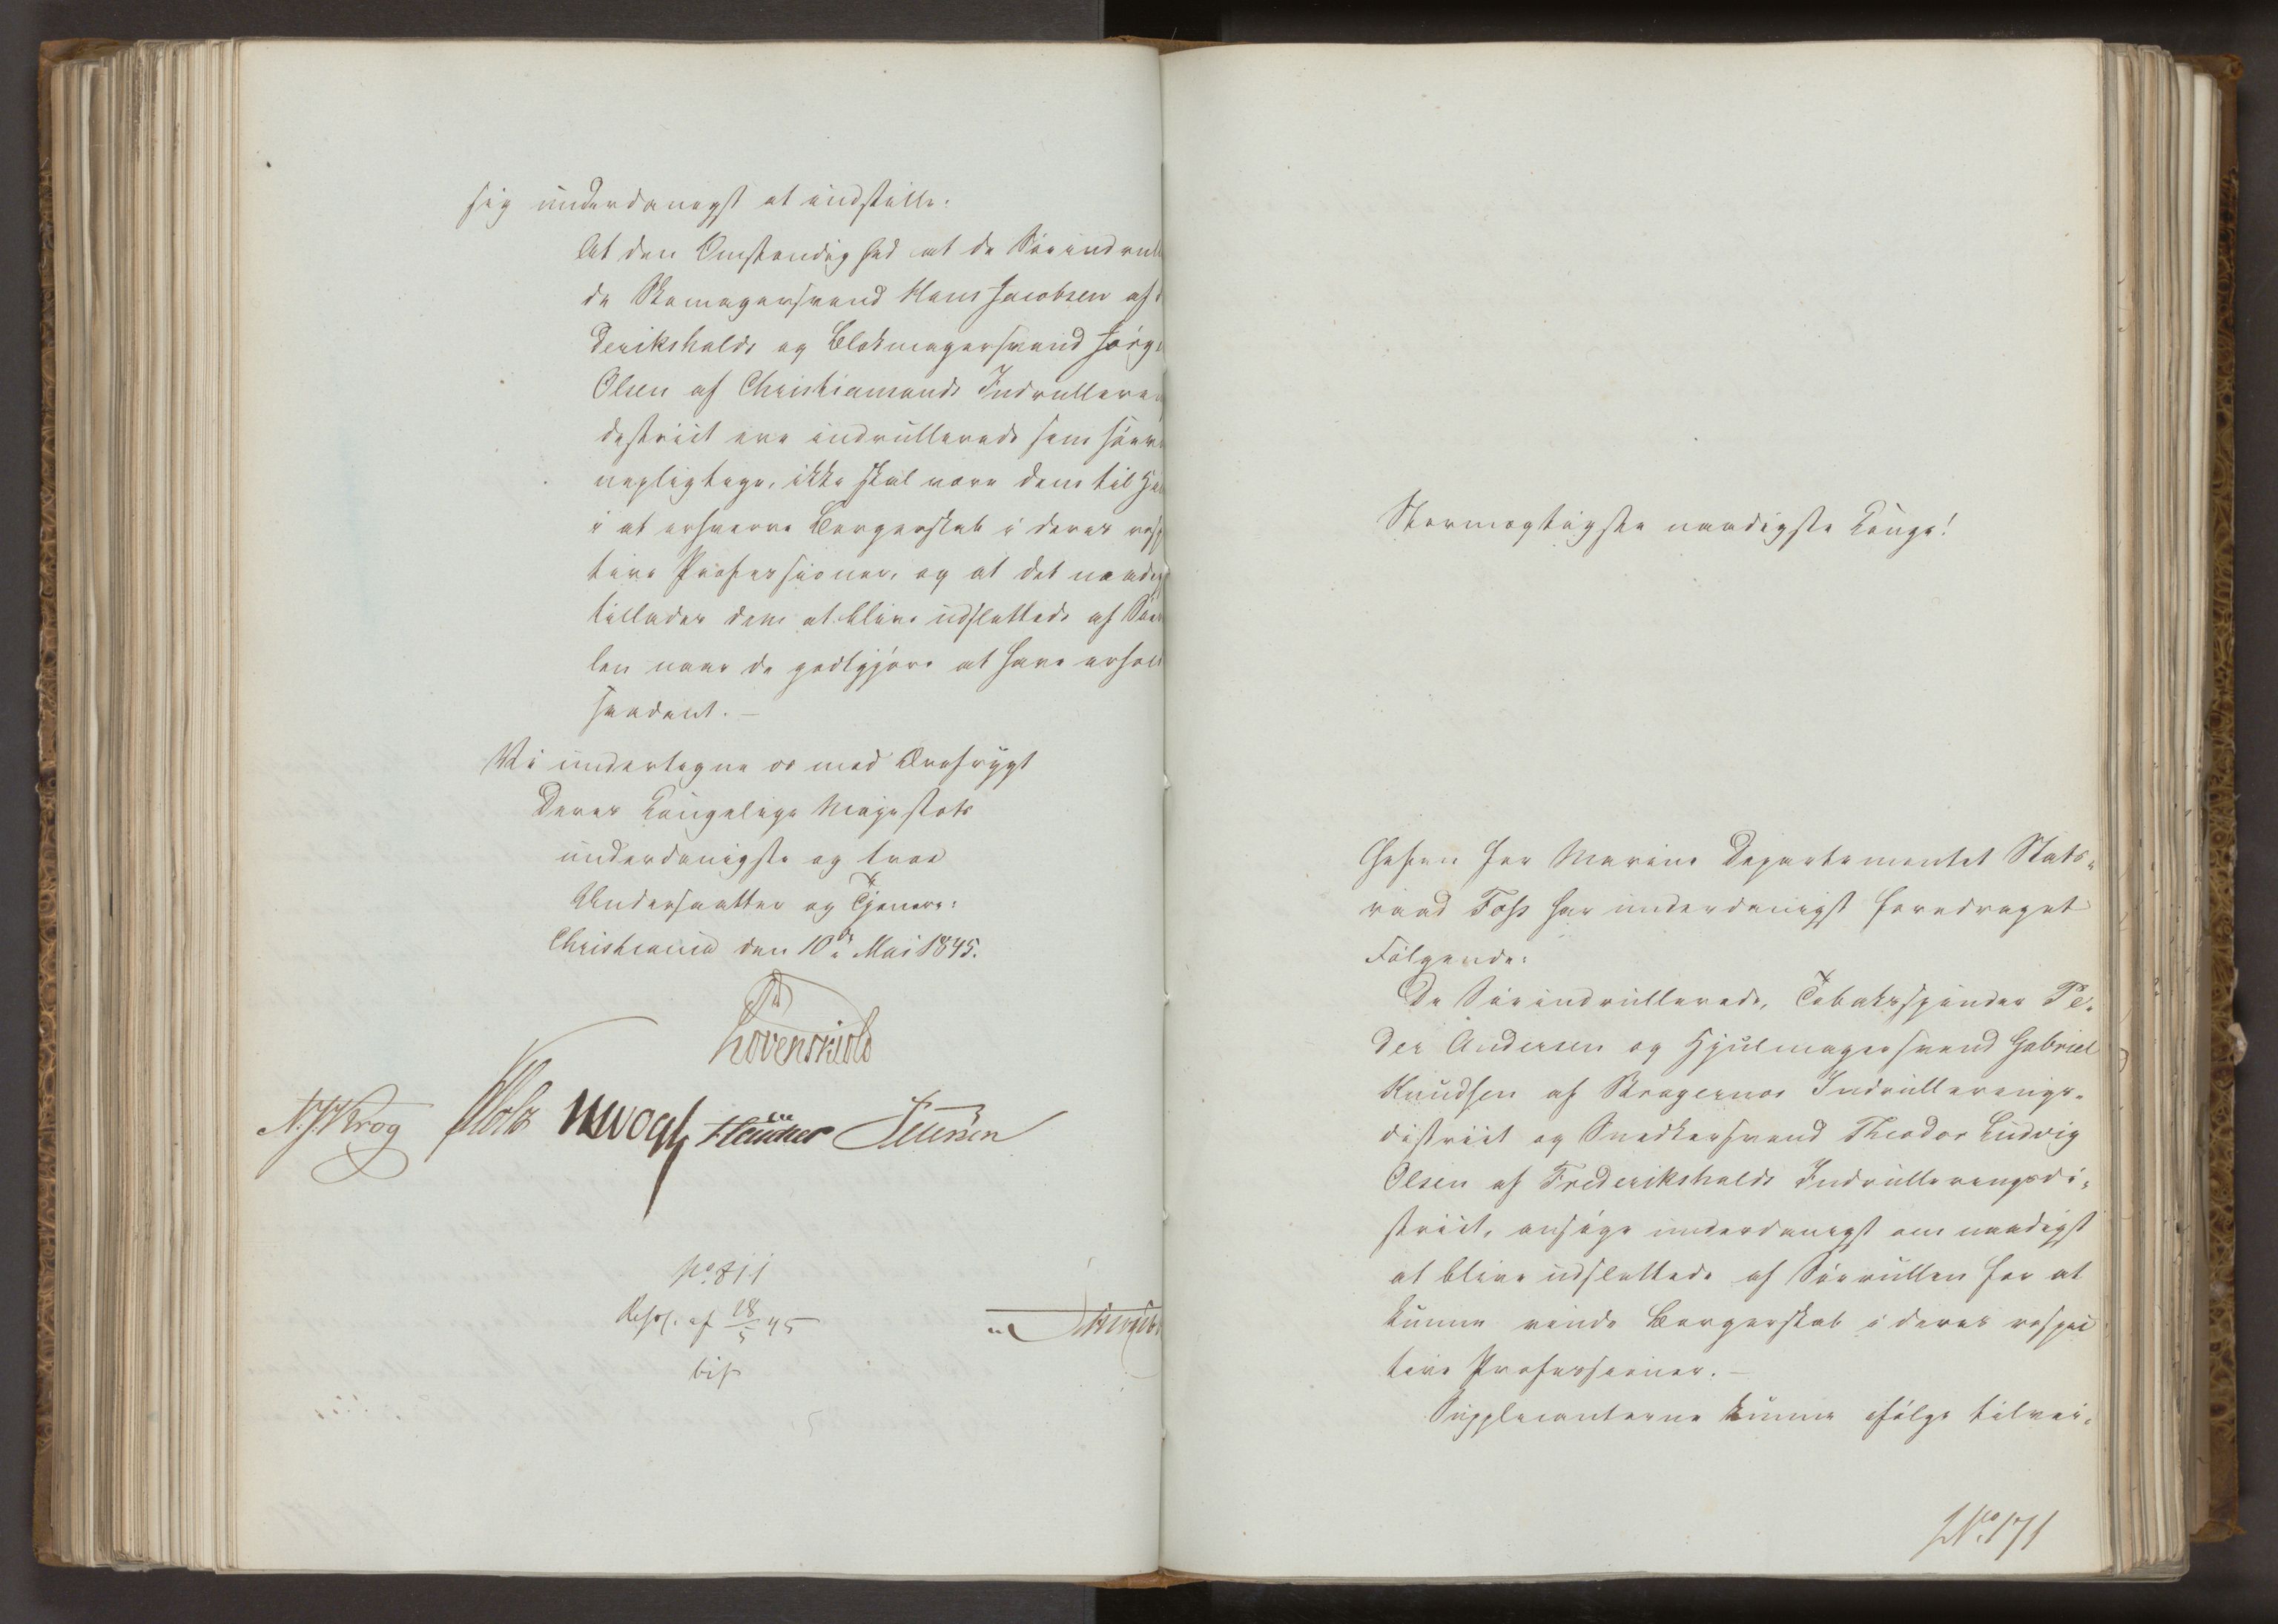 sig underdanigst at indstille:
At den Omstændighed at de Søeindrul
de Skomagersvend Hans Jacobsen af
derikshalds og Blokmagersvend Jørg
Olsen af Christiansands Indrullerin
district ere indrullerede som søevæ
nepligtige, ikke skal være dem til Hi
i at erhverve Borgerskab i deres resp
tive Professioner, og at det naadig
tillades dem at blive udslettede af Søer
len naar de godtgjøre at have erhol
saadant. —
Vi undertegne os med Ærefrygt
Deres Kongelige Majestæts
underdanigste og troe
Undersaatter og Tjenere:
Christiania den 10de Mai 1845.
Løvenskiold
N.J.Krog Holst JHVogt
No 811
Resol. af 18/5 45
Stormægtigste naadigste Konge!
Chefen for Marine Departementet Stats-
raad Foss har underdanigst foredraget
Følgende:
De Søeindrullerede, Tobaksspinder Pe-
der Andersen og Hjulmagersvend Gabriel
Knudsen af Bragernæs Indrullerings-
district og Snedkersvend Theodor Ludvig
Olsen af Frederikshalds Indrulleringsdi-
strict, ansøge underdanigst om naadigst
at blive udslettede af Søerullen for at
kunne vinde Borgerskab i deres respec
tive Professioner. —
Supplicanterne kunne ifølge tilvei-
No 171